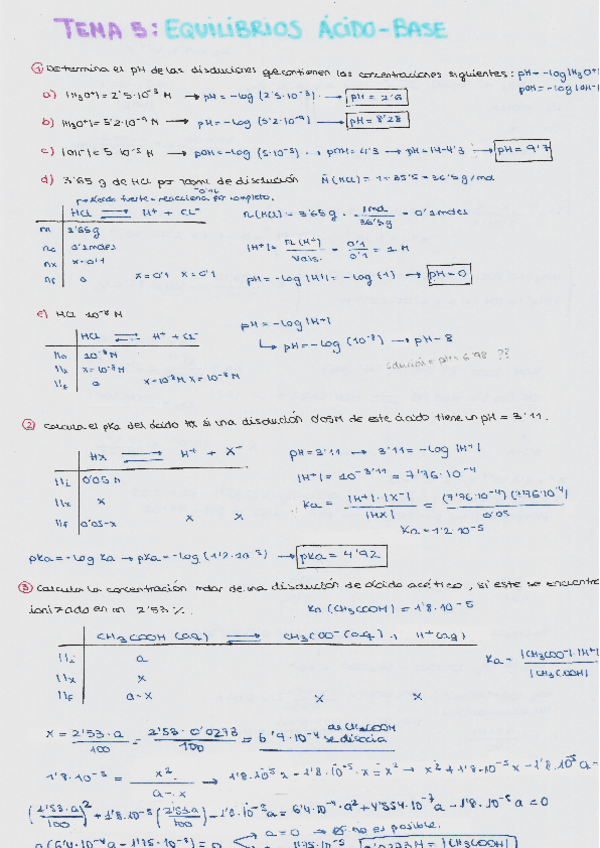 TEMA 5: EQUILIBRIOS ÁCIDO-BASE
① Determina el pH de las disoluciones que contienen las concentraciones siguientes: pH = -log|H₃O⁺|
pOH = -log|OH⁻|
a) |H₃O⁺| = 2'5·10⁻³ M → pH = -log (2'5·10⁻³) → pH = 2'6
b) |H₃O⁺| = 5'2·10⁻⁹ M → pH = -log (5'2·10⁻⁹) → pH = 8'28
c) |OH⁻| = 5·10⁻⁵ M → pOH = -log (5·10⁻⁵) → pOH = 4'3 → pH = 14-4'3 → pH = 9'7
d) 3'65 g de HCl por 100ml de disolución M̄ (HCl) = 1+35'5 = 36'5 g/mol
0'1L
ácido fuerte = reacciona por completo.
HCl ⇄ H⁺ + Cl⁻ n(HCl) = 3'65g · 1mol / 36'5g = 0'1moles
m 3'65g
n₀ 0'1moles |H⁺| = n(H⁺) / V dis. = 0'1 / 0'1 = 1 M
nx x = 0'1
nf 0 x = 0'1 x = 0'1 pH = -log|H⁺| = -log(1) → pH = 0
e) HCl 10⁻⁸ M pH = -log|H⁺|
HCl ⇄ H⁺ + Cl⁻ ↳ pH = -log(10⁻⁸) → pH = 8
10⁻⁸ M solución = pH = 6'98 ??
x = 10⁻⁸ M
0 x = 10⁻⁸ M x = 10⁻⁸ M
② Calcula el pKa del ácido HX si una disolución 0'05M de este ácido tiene un pH = 3'11.
HX ⇄ H⁺ + X⁻ pH = 3'11 → 3'11 = -log|H⁺|
0'05 M |H⁺| = 10⁻³'¹¹ = 7'76·10⁻⁴
x Ka = |H⁺|·|X⁻| / |HX| = (7'76·10⁻⁴)(7'76·10⁻⁴) / 0'05
0'05-x x x Ka = 1'2·10⁻⁵
pKa = -log Ka → pKa = -log (1'2·10⁻⁵) → pKa = 4'92
③ Calcula la concentración molar de una disolución de ácido acético, si este se encuentra
ionizado en un 2'53 %. Ka (CH₃COOH) = 1'8·10⁻⁵
CH₃COOH (aq) ⇄ CH₃COO⁻ (aq) + H⁺ (aq)
a Ka = |CH₃COO⁻|·|H⁺| / |CH₃COOH|
x
a-x x x
x = 2'53·a / 100 = 2'53·0'0273 / 100 = 6'9·10⁻⁴ de CH₃COOH se disocia
1'8·10⁻⁵ = x² / a-x → 1'8·10⁻⁵a - 1'8·10⁻⁵x = x² → x² + 1'8·10⁻⁵x - 1'8·10⁻⁵a =
(2'53·a / 100)² + 1'8·10⁻⁵ (2'53a / 100) - 1'8·10⁻⁵a = 6'4·10⁻⁴·a² + 4'554·10⁻⁷a - 1'8·10⁻⁵a = 0
a (6'4·10⁻⁴a - 1'75·10⁻⁵) = 0 a = 0 → no es posible.